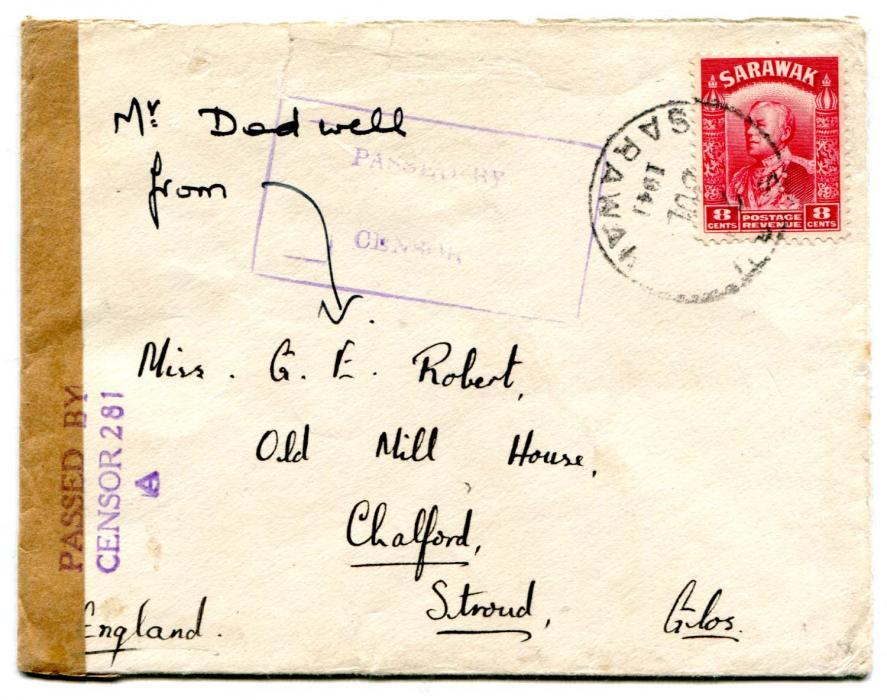 Mr Dodwell
from
PASSED BY
CENSOR
SARAWAK
JUL
1941
SARAWAK
8 CENTS POSTAGE REVENUE 8 CENTS
Miss. G. E. Robert,
Old Mill House,
Chalford,
Stroud, Glos.
England.
PASSED BY
CENSOR 281